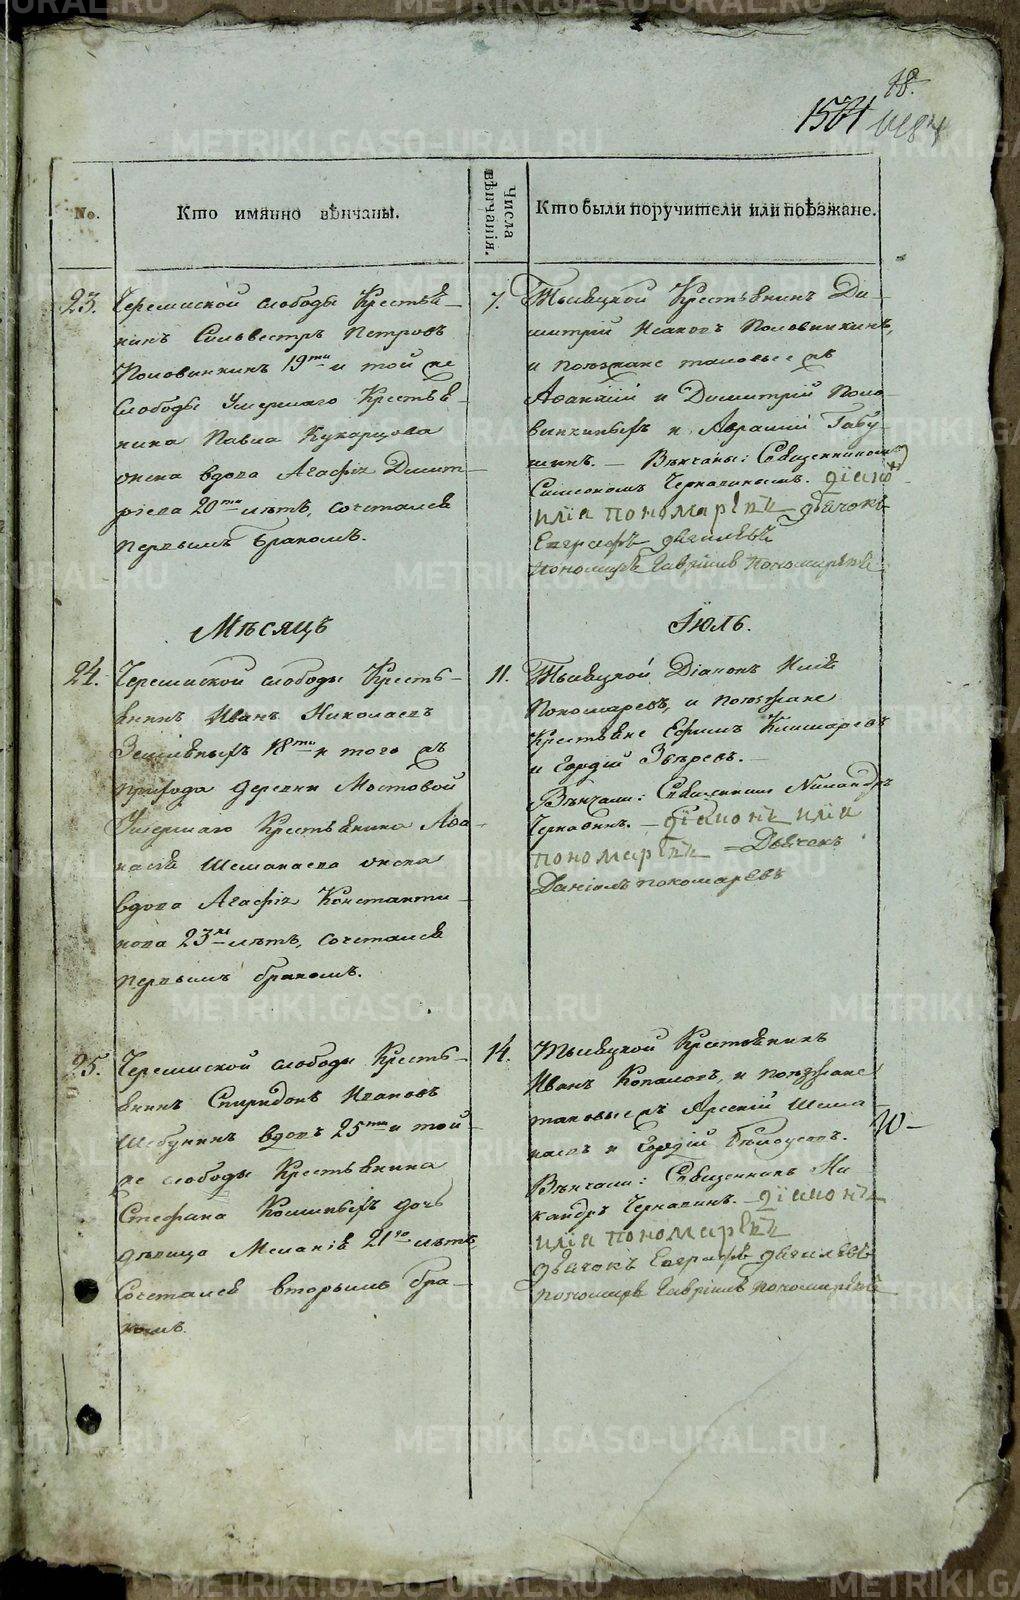 18.
1501
No.
Кто имянно вѣнчаны.
Числа вѣнчанія.
Кто были поручители или поѣзжане.
23.
Черемиской слободы Крестья-
нинъ Сильвестръ Петровъ
Половинкинъ 19ти и той же
слободы умершаго Крестья-
нина Павла Кукарцова
жена вдова Агафія Димит-
ріева 20ти лѣтъ, сочетался
первымъ бракомъ.
7.
Тысяцкой Крестьянинъ Ди-
митрій Исаковъ Половинкинъ,
и поѣзжане таковые жъ
Аѳанасій и Димитрій Поло-
винкиныхъ и Авраамій Габу-
шинъ. — Вѣнчаны: Священникомъ
Симеономъ Чернавинымъ. діаконъ
илія пономаревъ дьячокъ
Евграфъ
пономарь Гавріилъ пономаревъ
Мѣсяцъ
Іюль.
24.
Черемиской слободы Кресть-
янинъ Иванъ Николаевъ
18ти и того жъ
прихода деревни Мостовой
Умершаго Крестьянина Аѳа-
насія Шеманаева жена
вдова Агафія Константи-
нова 23хъ лѣтъ, сочетался
первымъ бракомъ.
11.
Тысяцкой Діаконъ Илія
Пономаревъ, и поѣзжане
Крестьяне Ефимъ Клишаревъ
и Гордій Звѣревъ.
Вѣнчали: Священникъ Никандръ
Чернавинъ. — діаконъ илія
пономаревъ — Дьячокъ
Даніилъ пономаревъ
25.
Черемиской слободы Кресть-
янинъ Спиридонъ Ивановъ
Шебунинъ вдовъ 25ти и той
же слободы Крестьянина
Стефана Кошиныхъ дочь
дѣвица Меланія 21го лѣтъ,
Сочетался вторымъ бра-
комъ.
14.
Тысяцкой Крестьянинъ
Иванъ Копаловъ, и поѣзжане
таковые жъ Арсеній Шема-
наевъ и Гордій Бѣлоусовъ.
Вѣнчали: Священникъ Ни-
кандръ Чернавинъ. — діаконъ
илія пономаревъ
дьячокъ Евграфъ
пономарь Гавріилъ пономаревъ
METRIKI.GASO-URAL.RU